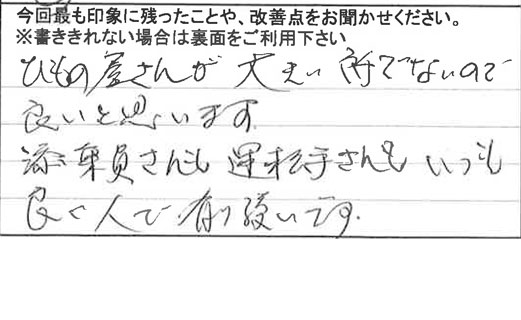 今回最も印象に残ったことや、改善点をお聞かせください。
※書ききれない場合は裏面をご利用下さい
ひもの屋さんが大きい所でないので
良いと思います。
添乗員さんも運転手さんもいつも
良く人で有り難いです。